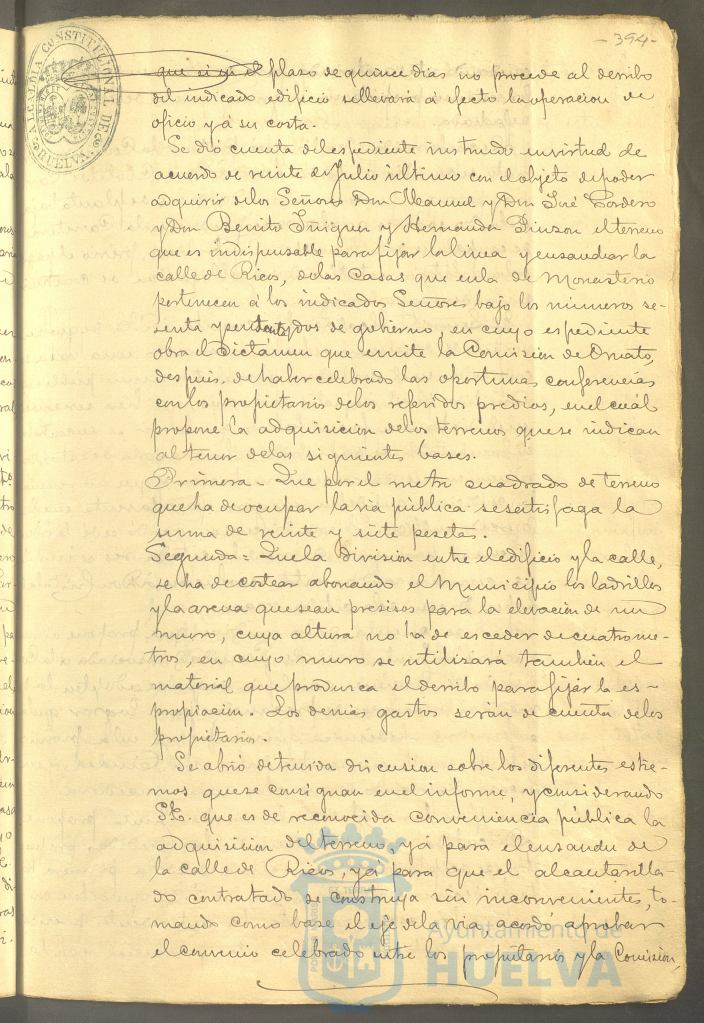 -394-
ALCALDIA CONSTITUCIONAL DE HUELVA
que si en el plazo de quince dias no procede al derribo
del indicado edificio se llevará á efecto la operacion de
oficio y á su costa.
Se dió cuenta del espediente instruido en virtud de
acuerdo de veinte de Julio último con el objeto de poder
adquirir de los Señores Don Manuel y Don José Cordero
y Don Benito Iñiguez y Hernandez Pinzon el terreno
que es indispensable para fijar la linea y ensanchar la
calle de Ricos, de las Casas que en la de Monasterio
pertenecen á los indicados Señores bajo los números se-
senta y dos de gobierno, en cuyo espediente
obra el Dictámen que emite la Comision de Ornato,
despues de haber celebrado las oportunas conferencias
con los propietarios de los referidos predios, en el cuál
propone la adquisicion de los terrenos que se indican
al tenor de las siguientes bases.
Primera - Que por el metro cuadrado de terreno
que ha de ocupar la via pública se satisfaga la
suma de veinte y siete pesetas.
Segunda = Que la division entre el edificio y la calle,
se ha de costear abonando el Municipio los ladrillos
y la arena que sean presisos para la elevacion de un
muro, cuya altura no ha de esceder de cuatro me-
tros, en cuyo muro se utilizará tambien el
material que produzca el derribo para fijar la es-
propiacion. Los demas gastos serán de cuenta de los
propietarios.
Se abrió detenida discusion sobre los diferentes estre-
mos que se consignan en el informe, y considerando
S.E. que es de reconocida conveniencia pública la
adquisicion del terreno, yá para el ensanche de
la calle de Ricos, yá para que el alcantarilla-
do contratado se construya sin inconvenientes, to-
mando como base el eje de la via, acordó aprobar
el convenio celebrado entre los propietarios y la Comision,
Ayuntamiento de
HUELVA